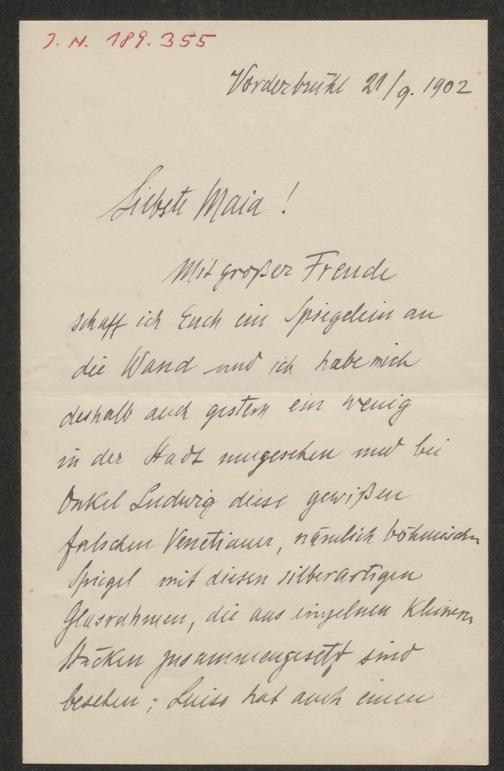 J. N. 189.355
Vorderbrühl 21/9. 1902
Liebste Maia!
Mit großer Freude
schaff ich Euch ein Spiegelein an
die Wand und ich habe mich
deshalb auch gestern ein wenig
in der Stadt umgesehen und bei
Onkel Ludwig diese gewißen
falschen Venetianer, nämlich böhmischen
Spiegel mit diesen silberartigen
Glasrahmen, die aus einzelnen kleinen
Stücken zusammengesetzt sind
besehen; Luise hat auch einen